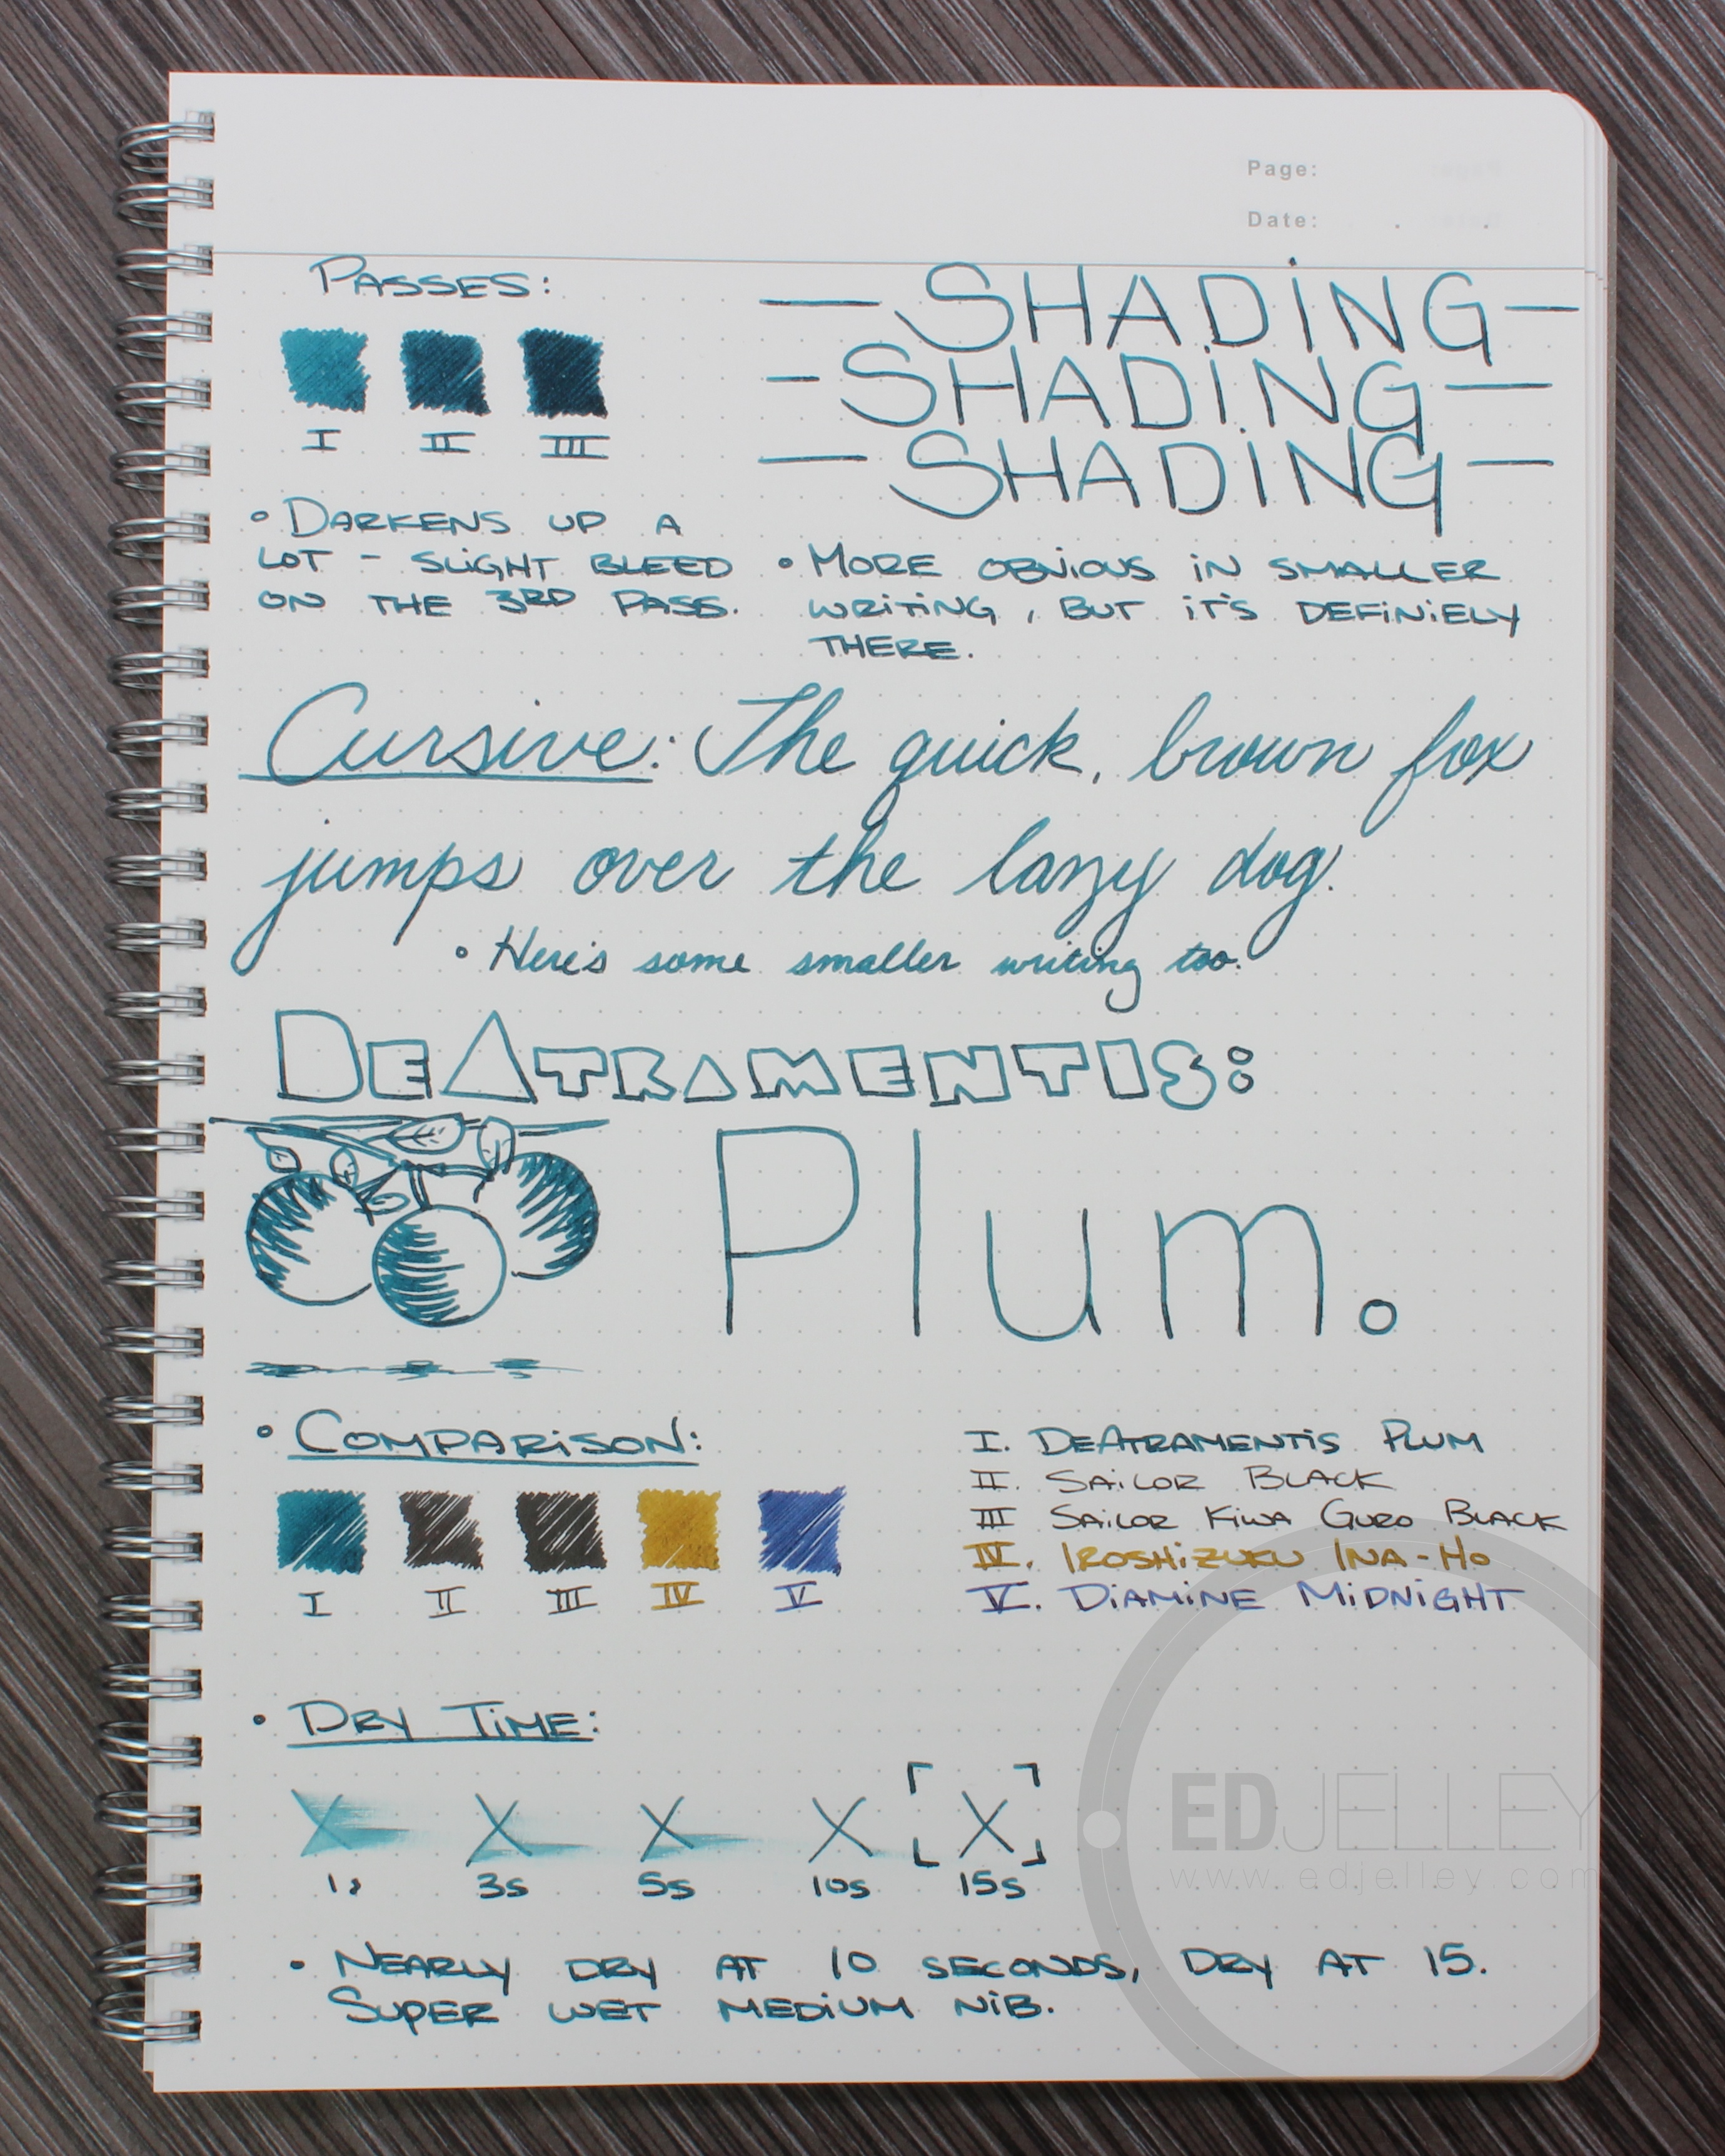 Page:
Date:
PASSES:
I II III
• DARKENS UP A
LOT - SLIGHT BLEED
ON THE 3RD PASS.
— SHADING —
- SHADING —
— SHADING —
• MORE OBVIOUS IN SMALLER
WRITING, BUT IT'S DEFINIELY
THERE.
Cursive: The quick, brown fox
jumps over the lazy dog.
• Here's some smaller writing too.
DEATRAMENTIS:
Plum.
• COMPARISON:
I II III IV V
I. DEATRAMENTIS PLUM
II. SAILOR BLACK
III SAILOR KIWA GURO BLACK
IV. IROSHIZUKU INA-HO
V. DIAMINE MIDNIGHT
• DRY TIME:
X X X X X
1s 3s 5s 10s 15s
EDJELLEY
www.edjelley.com
• NEARLY DRY AT 10 SECONDS, DRY AT 15.
SUPER WET MEDIUM NIB.